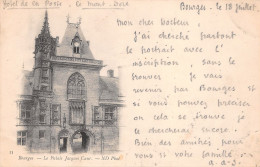 Hotel de la Poste, le Mont-Dore
Bourges - le 18 juillet
Mon cher docteur,
J'ai cherché partout
le portrait avec l'
inscription sans le
trouver. Je vais
revenir par Bourges et
si vous pouvez préciser
on cela se trouve je
le chercherai encore
Bien des amitiés pour
vous et la famille
11 Bourges. - Le Palais Jacques Cœur. - ND Phot.